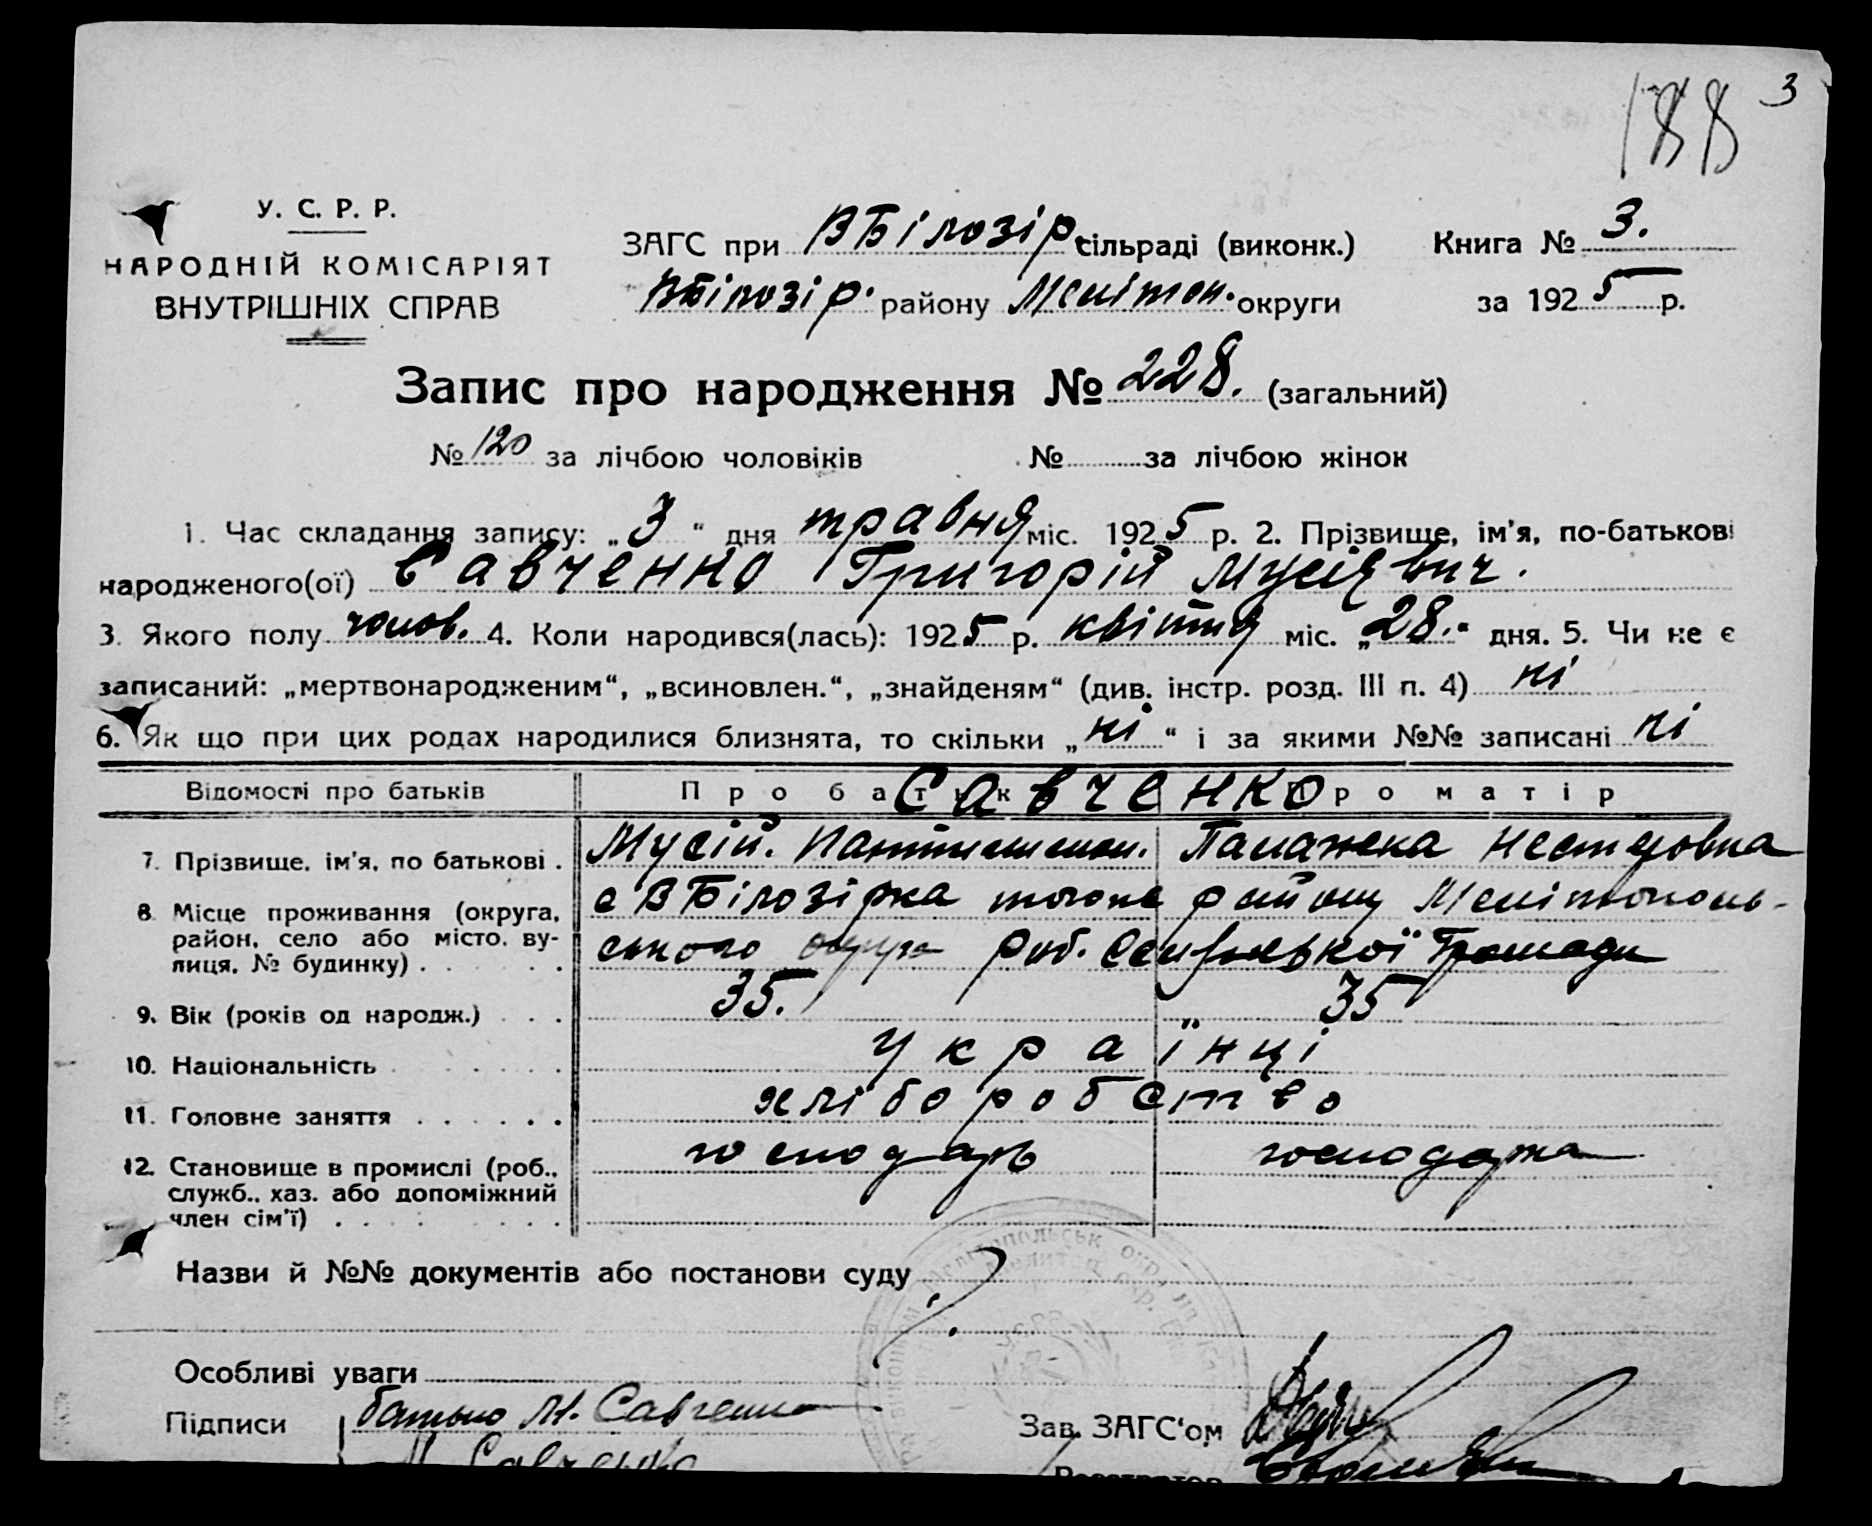 188 3
У. С. Р. Р.
НАРОДНІЙ КОМІСАРІЯТ
ВНУТРІШНІХ СПРАВ
ЗАГС при ВБілозір. сільраді (виконк.) Книга № 3.
ВБілозір. району Меліто​п. округи за 1925 р.
Запис про народження № 228. (загальний)
№ 120 за лічбою чоловіків № за лічбою жінок
1. Час складання запису: „3“ дня травня міс. 1925 р. 2. Прізвище, ім'я, по-батькові
народженого(ої) Савченко Григорій Мусієвич.
3. Якого полу чолов. 4. Коли народився(лась): 1925 р. квітня міс. „28.“ дня. 5. Чи не є
записаний: „мертвонародженим“, „всиновлен.“, „знайденям“ (див. інстр. розд. III п. 4) ні
6. Як що при цих родах народилися близнята, то скільки „ні“ і за якими №№ записані ні
Відомості про батьків Про батька Про матір
Савченко
7. Прізвище, ім'я, по батькові . Мусій. Нестеровна
8. Місце проживання (округа, с ВБілозірка того же району Мелітополь-
район, село або місто, ву- ського округи Громади
лиця, № будинку) . . . .
9. Вік (років од народж.) . . . 35. 35
10. Національність . . . . . Українці
11. Головне заняття . . . . . . хліборобство
12. Становище в промислі (роб., господарь господарка
служб., хаз. або допоміжний
член сім'ї) . . . . . .
Назви й №№ документів або постанови суду
Особливі уваги
Підписи батько М. Савченко Зав. ЗАГС'ом
М Савченко Реєстратор